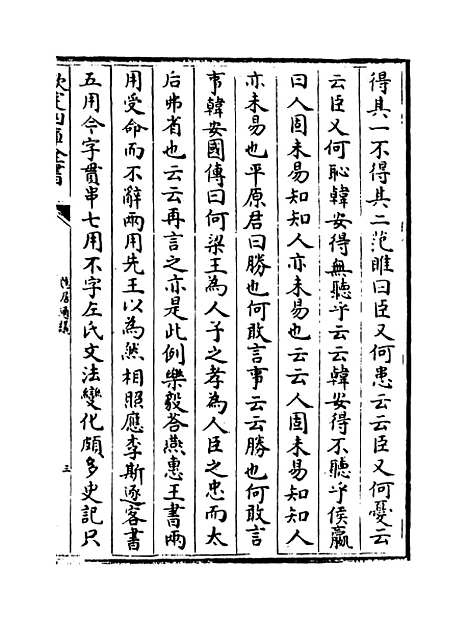 得其一不得其二范睢曰臣又何患云云臣又何憂云
云臣又何恥韓安得無聽乎云云韓安得不聽乎侯嬴
曰人固未易知知人亦未易也云云人固未易知知人
亦未易也平原君曰勝也何敢言事云云勝也何敢言
事韓安國傳曰何梁王為人子之孝為人臣之忠而太
后弗省也云云再言之亦是此例樂毅答燕惠王書兩
用受命而不辭兩用先王以為然相照應李斯逐客書
五用今字貫串七用不字左氏文法變化頗多史記只
欽定四庫全書
隱居通議
三